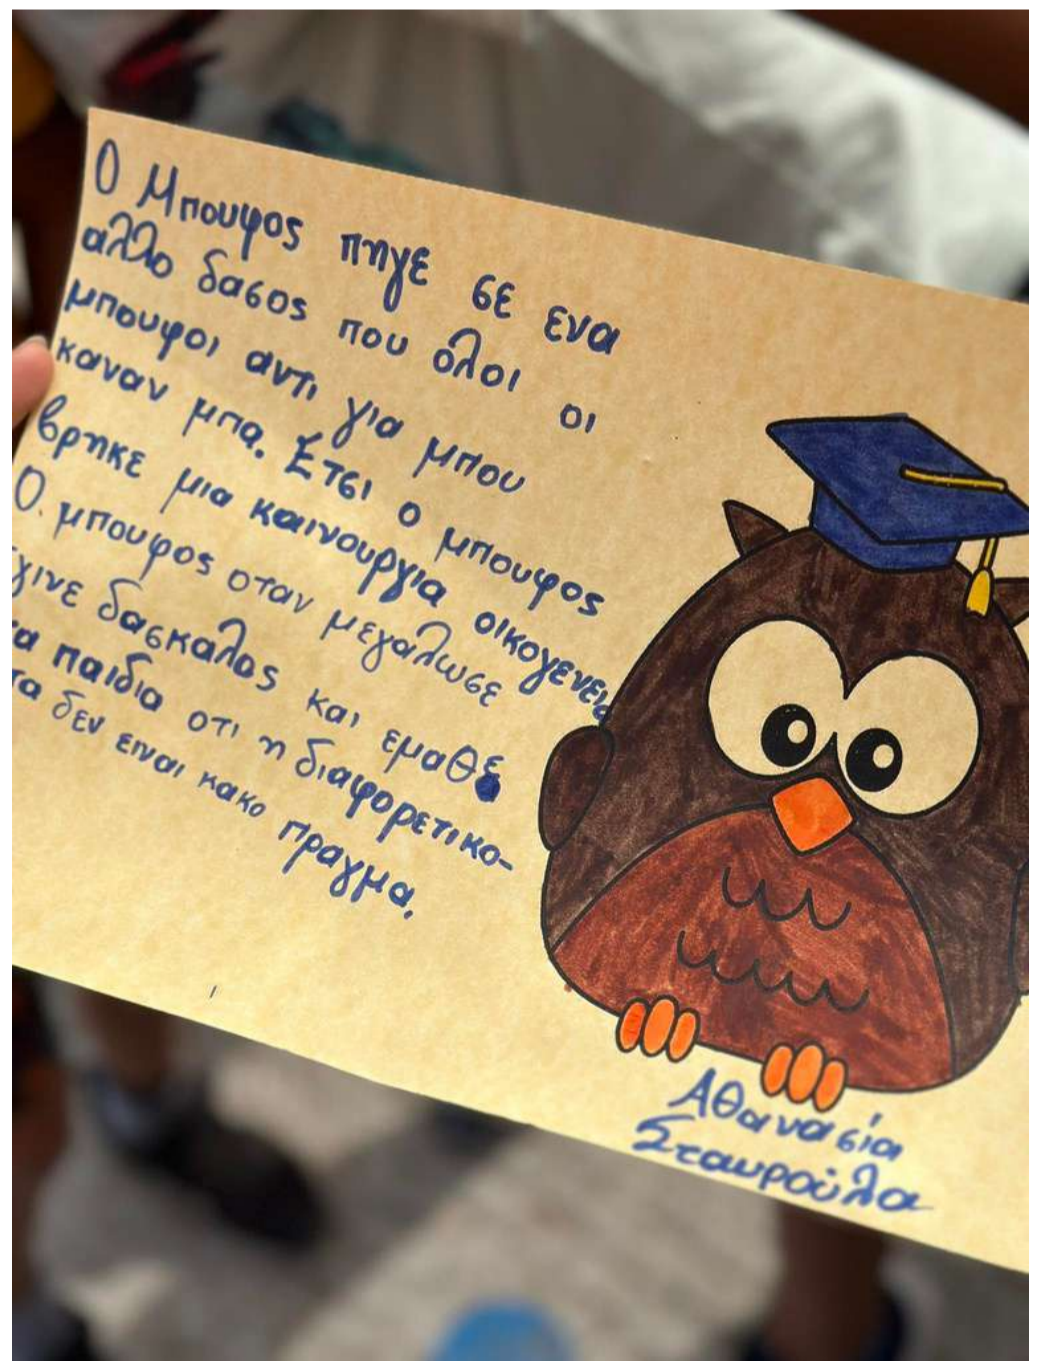 Ο Μπουφος πηγε σε ενα
αλλο δασος που όλοι οι
μπουφοι αντι για μπου
καναν μπα. Έτσι ο μπουφος
βρηκε μια καινουργια οικογενεια
Ο. μπουφος οταν μεγαλωσε
γινε δασκαλος και εμαθε
α παιδια οτι η διαφορετικο-
τα δεν ειναι κακο πραγμα.
Αθανασία
Σταυρούλα